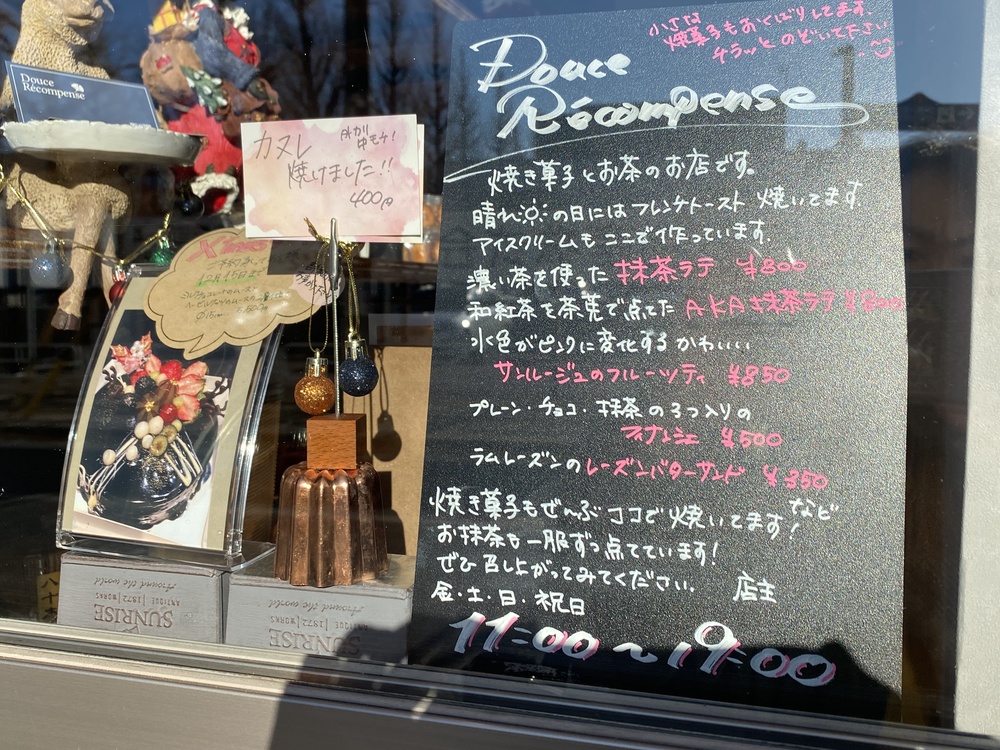 小さな
焼菓子もおくばりしてます
チラッとのぞいて下さい
Douce
Récompense
焼き菓子とお茶のお店です。
晴れの日にはフレンチトースト 焼いてます
アイスクリームもここで作っています。
濃い茶を使った 抹茶ラテ ¥800
和紅茶を茶筅で点てた AKA抹茶ラテ ¥800
水色がピンクに変化するかわいい
サンルージュのフルーツティ ¥850
プレーン・チョコ・抹茶の3つ入りの
フィナンシェ ¥500
ラムレーズンのレーズンバターサンド ¥350
など
焼き菓子もぜーんぶココで焼いてます!
お抹茶も一服ずつ点てています!
ぜひ召し上がってみてください。 店主
金・土・日・祝日
11:00〜19:00
Douce
Récompense
カヌレ
焼けました!!
400円
X'mas
12月15日まで
Around the world
ANTIQUE 1872 WORKS
SUNRISE
Around the world
ANTIQUE 1872 WORKS
SUNRISE